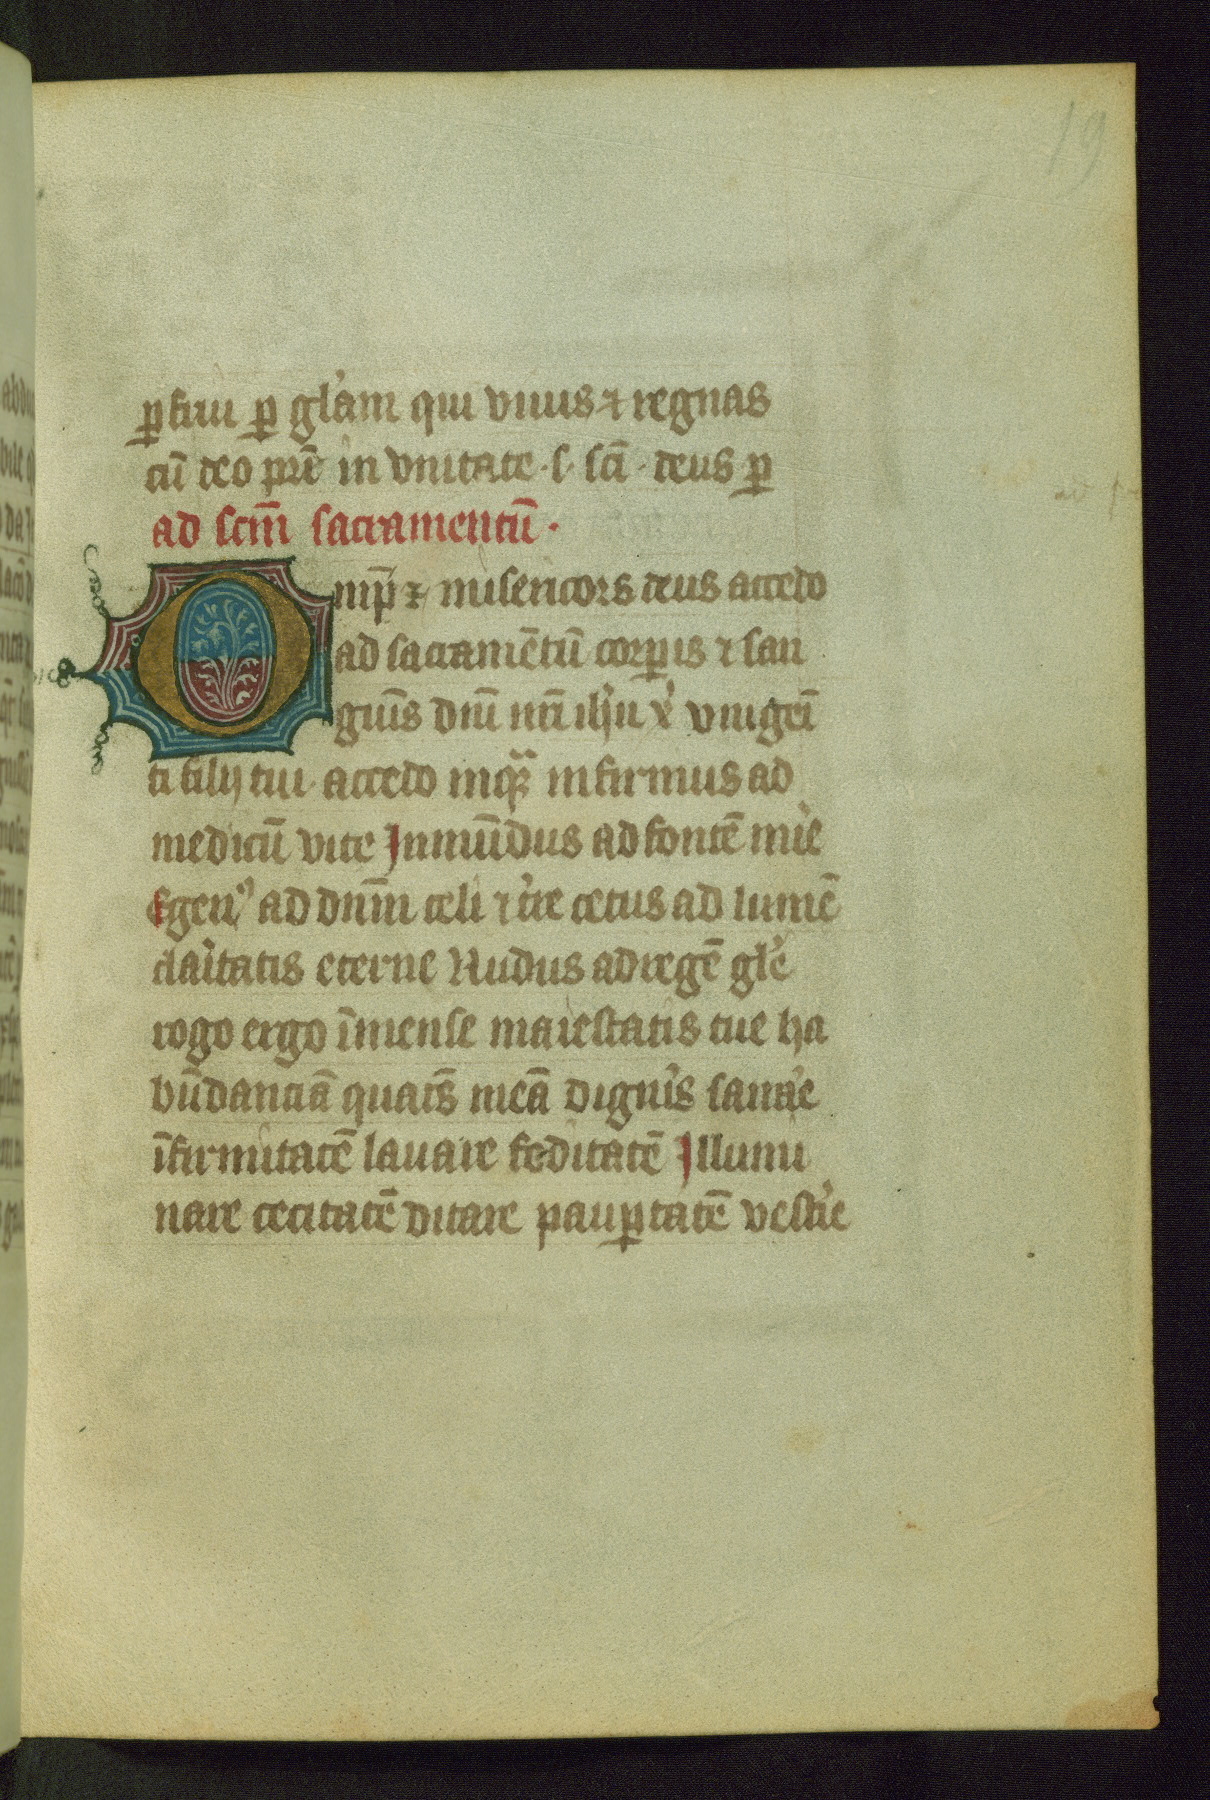 19
ꝑfrui ꝑ gl'am qui viuis ⁊ regnas
cū deo pr̄e in vnitate · s · sc̄i · deus ꝑ
ad scm̄ sacramentū ·
Omp̄s ⁊ misericors deus accedo
ad sacramētū corꝑis ⁊ san
guīs dn̄i nr̄i ih̄u xᶦ vnigeī
ti filij tui accedo inqᷓ infirmus ad
medicū vite Inmūdus ad fontē mie
Egenꝰ ad dnm̄ celi ⁊ t're cecus ad lumē
claitatis eterne Nudus ad regē gl'e
rogo ergo īmense maiestatis tue ha
būdanciā quatꝰ meā digneris sanar'e
īfirmitatē lauare feditatē Illumi
nare cecitatē ditare pauꝑtatē vesti'e